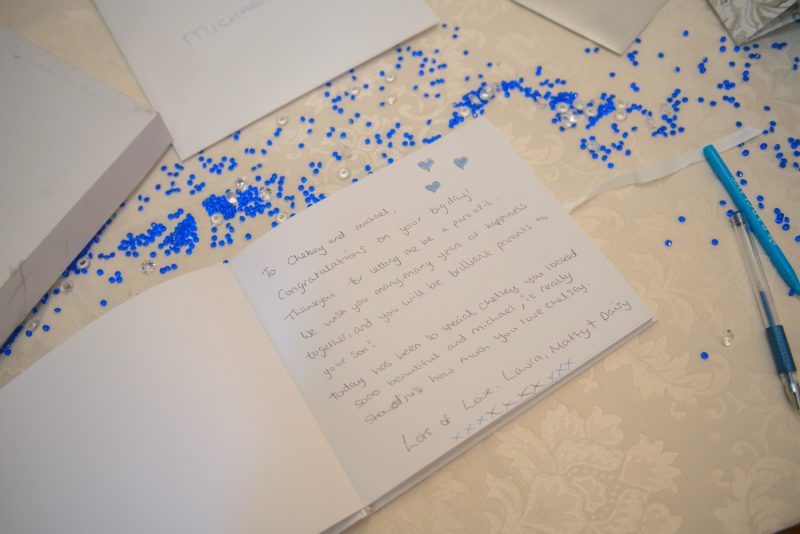 Michael
To Chelsey and michael,
Congratulations on your big day!
Thankyou for letting me be a part of it.
We wish you many,many years of happiness
together, and you will be brilliant parents to
your son!
Today has been so special, Chelsey you looked
sooo beautiful and michael, it really
shows just how much you love Chelsey
Lots of Love, Laura, Matty + Daisy
xxxxxxxxxx